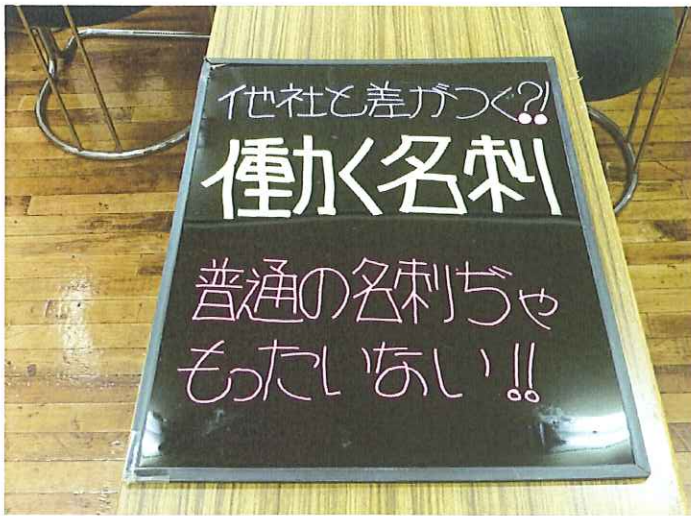 他社と差がつく?!
働く名刺
普通の名刺ぢゃ
もったいない!!